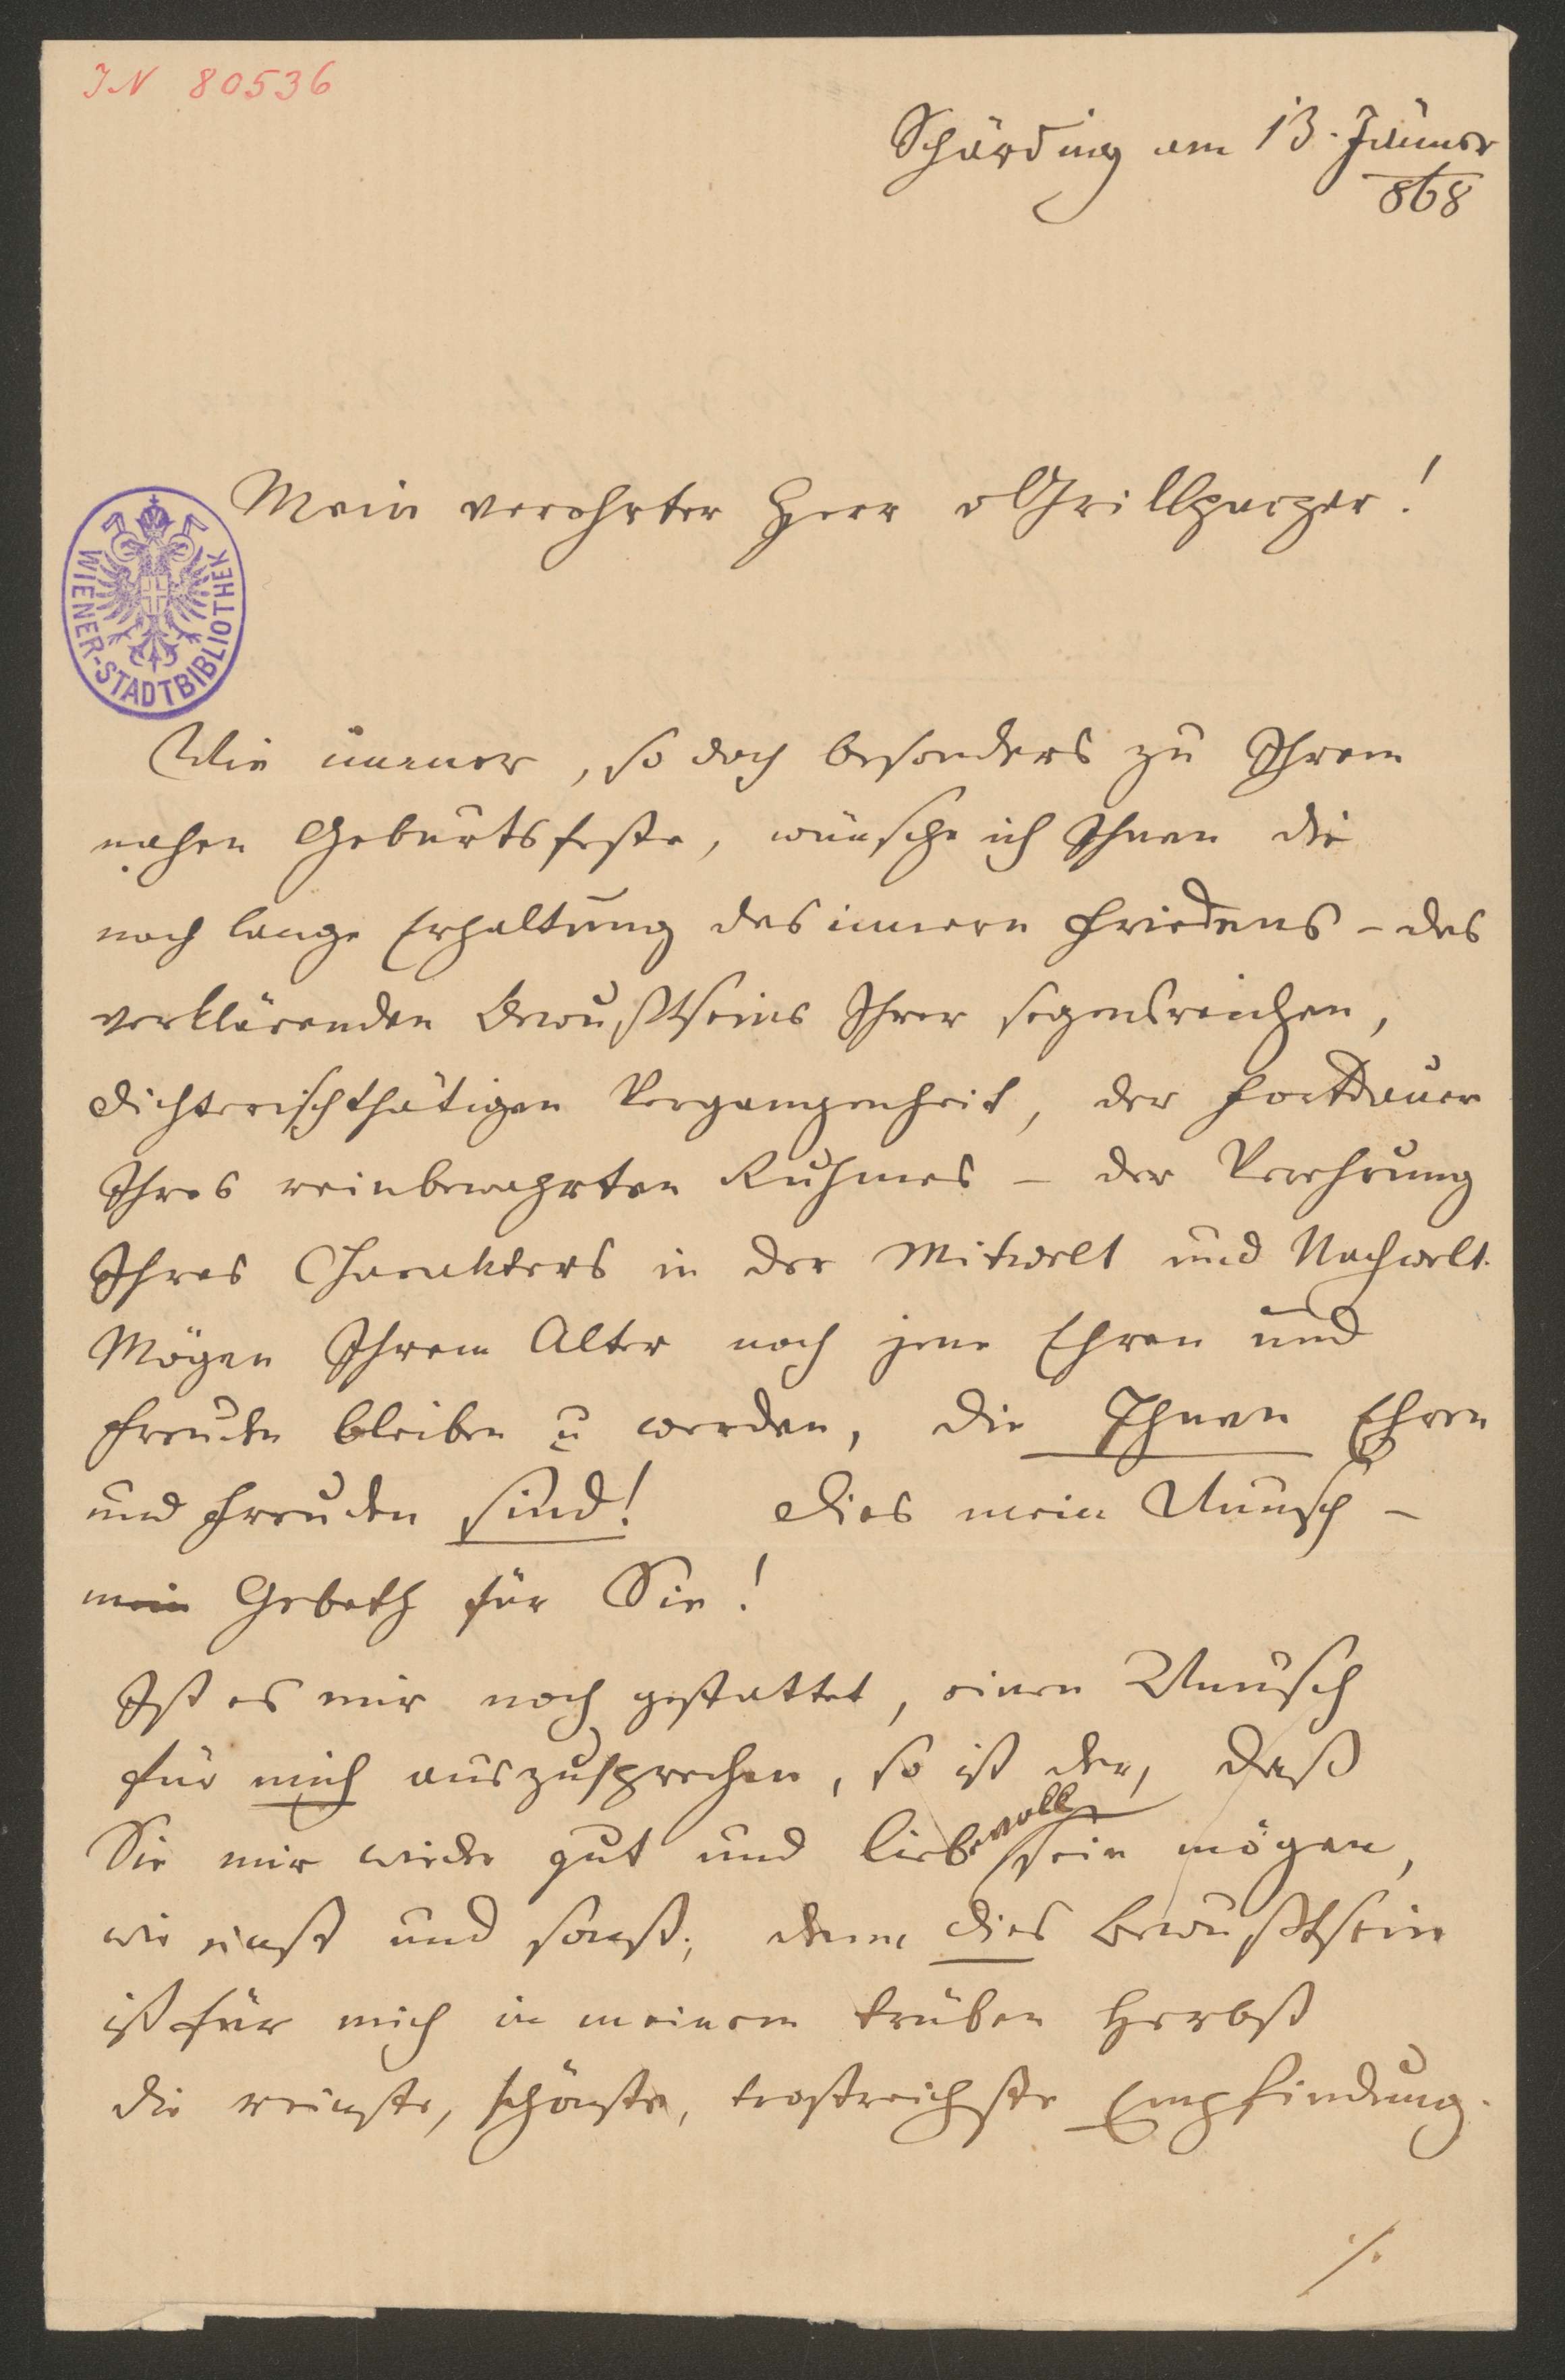 IN 80536
Schärding am 13. Jänner
868
Mein verehrter Herr v Grillparzer!
WIENER-STADTBIBLIOTHEK
Wie immer, so doch besonders zu Ihrem
nahen Geburtsfeste, wünsche ich Ihnen die
noch lange Erhaltung des innern Friedens – des
verklärenden Bewußtseins Ihrer segensreichen,
dichterischthätigen Vergangenheit, der Fortdauer
Ihres reinbewahrten Ruhmes – der Verehrung
Ihres Charakters in der Mitwelt und Nachwelt.
Mögen Ihrem Alter noch jene Ehren und
Freuden bleiben u werden, die Ihnen Ehren
und Freuden sind! Dies mein Wunsch –
mein Gebeth für Sie!
Ist es mir noch gestattet, einen Wunsch
für mich auszusprechen, so ist der, daß
Sie mir wieder gut und liebevoll sein mögen,
wie einst und sonst; denn dies Bewußtsein
ist für mich in meinem trüben Herbst
die reinste, schönste, trostreichste Empfindung.
./.